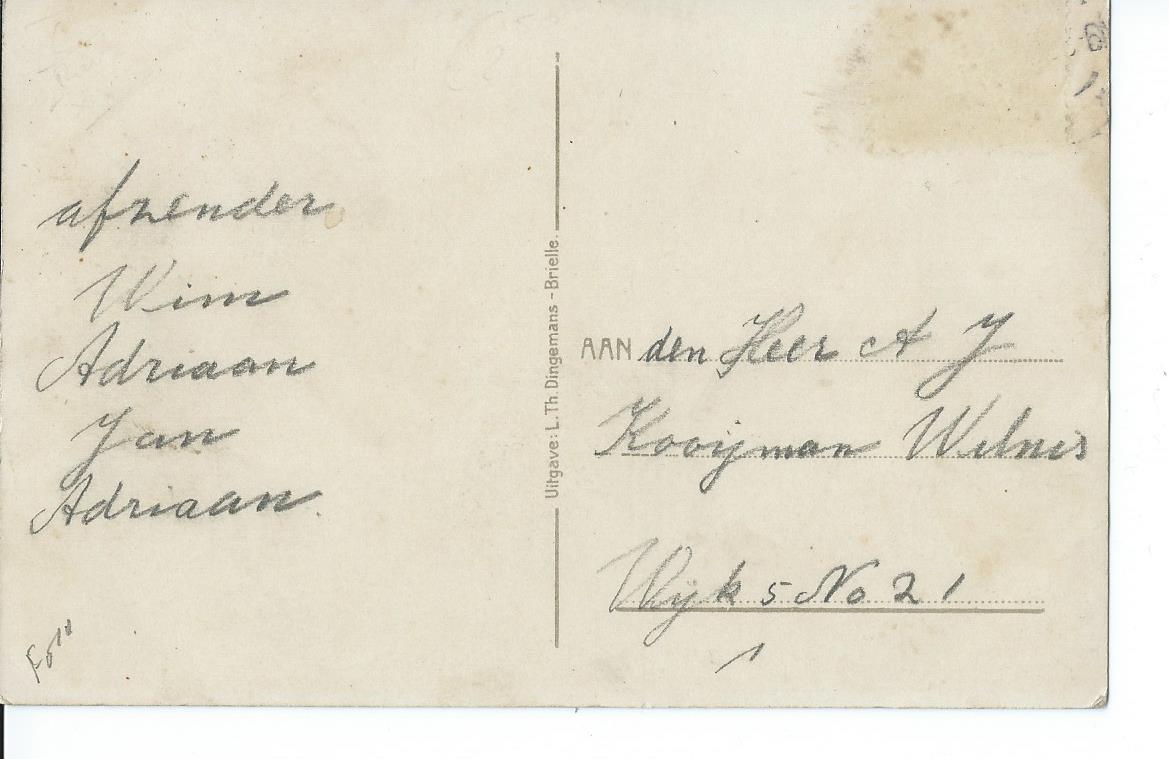 afzender
Wim
Adriaan
Jan
Adriaan.
Uitgave: L. Th. Dingemans - Brielle.
AAN den Heer A J
Kooijman Wilnis
Wijk 5 No 21